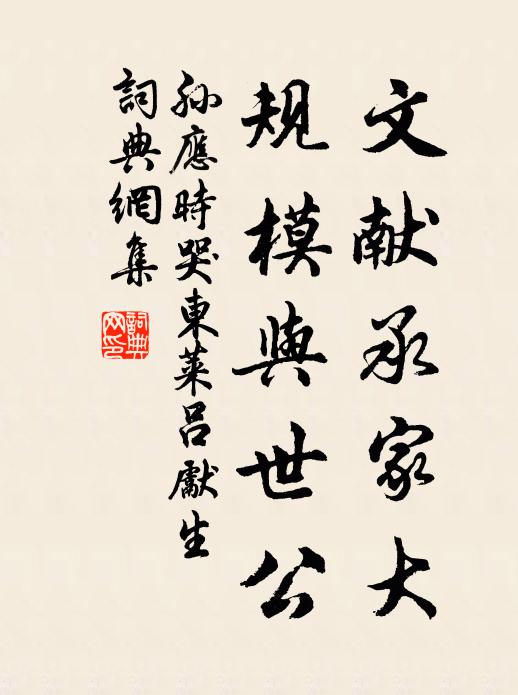 文献承家大
規模與世公
孙應時哭東萊吕獻生
詞典網集
詞典網印